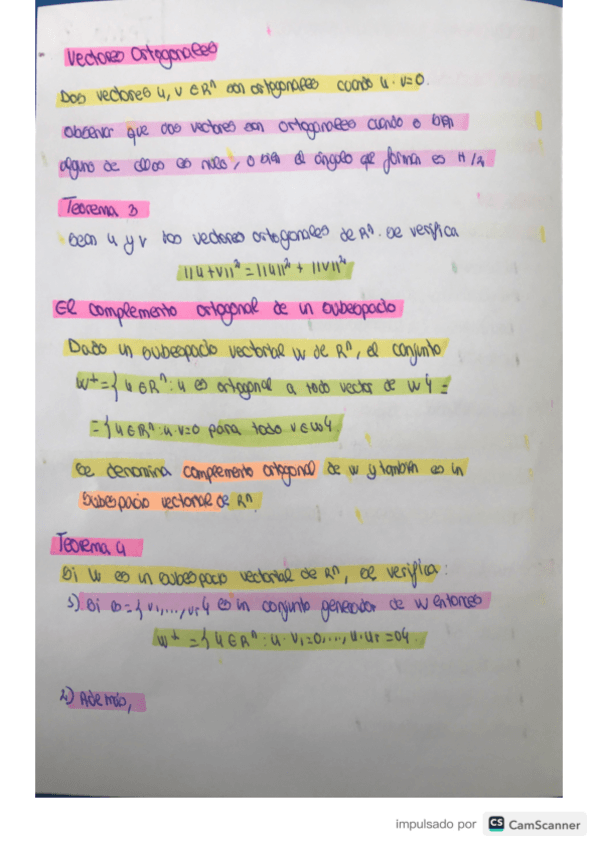 Vectores Ortogonales
Dos vectores u, v ∈ Rⁿ son ortogonales cuando u · v=0.
Observar que dos vectores son ortogonales cuando o bien
alguno de ellos es nulo, o bien el ángulo que forman es π/2
Teorema 3
Sean u y v dos vectores ortogonales de Rⁿ. Se verifica
||u+v||² = ||u||² + ||v||²
El complemento ortogonal de un subespacio
Dado un subespacio vectorial W de Rⁿ, el conjunto
W⊥ = { u ∈ Rⁿ : u es ortogonal a todo vector de W } =
= { u ∈ Rⁿ : u · v=0 para todo v ∈ W }
Se denomina complemento ortogonal de W y también es un
Subespacio vectorial de Rⁿ
Teorema 4
Si W es un subespacio vectorial de Rⁿ, se verifica:
1) Si B = { v₁, ..., vᵣ } es un conjunto generador de W entonces
W⊥ = { u ∈ Rⁿ : u · v₁=0, ..., u · uᵣ =0 }.
2) Además,
impulsado por CS CamScanner